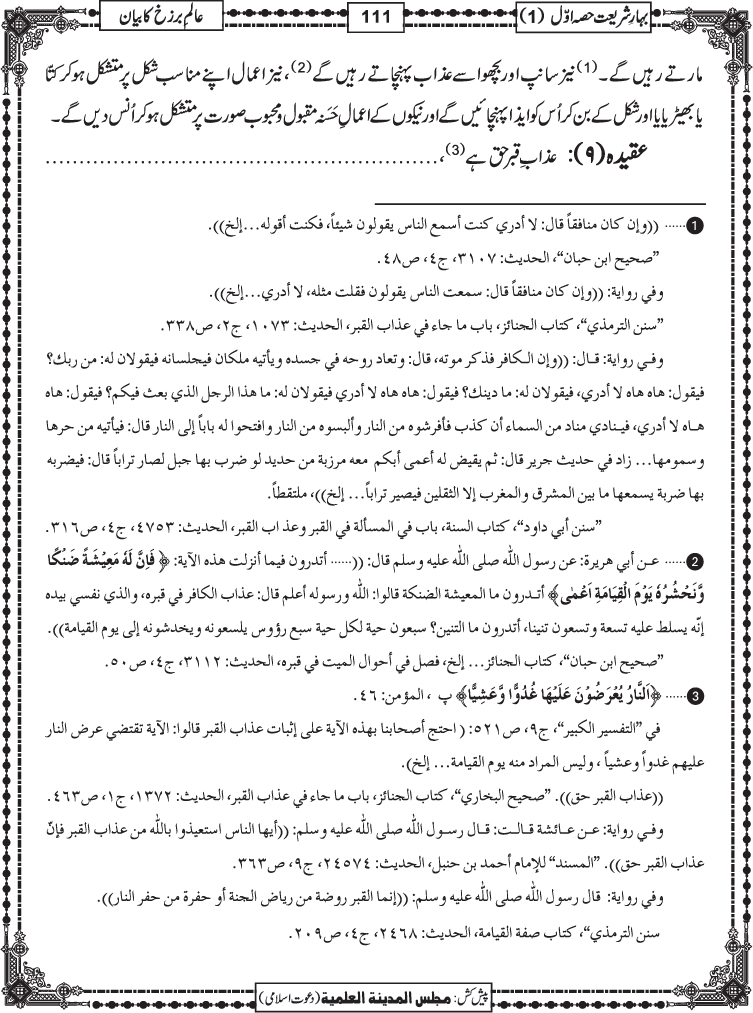 بہارِ شریعت حصہ اوّل (1)
111
عالمِ برزخ کا بیان
مارتے رہیں گے۔(1) نیز سانپ اور بچھو اسے عذاب پہنچاتے رہیں گے(2)، نیز اعمال اپنے مناسب شکل پر متشکل ہو کر کتّا
یا بھیڑیا یا اور شکل کے بن کر اُس کو ایذا پہنچائیں گے اور نیکوں کے اعمالِ حَسَنہ مقبول و محبوب صورت پر متشکل ہو کر اُنس دیں گے۔
عقیدہ (۹): عذابِ قبر حق ہے(3)،..........................................................
1 ...... ((وإن كان منافقاً قال: لا أدري كنت أسمع الناس يقولون شيئاً، فكنت أقوله...إلخ)).
”صحيح ابن حبان“، الحديث: ۳۱۰۷، ج٤، ص٤٨.
وفي رواية: ((وإن كان منافقاً قال: سمعت الناس يقولون فقلت مثله، لا أدري...إلخ)).
”سنن الترمذي“، كتاب الجنائز، باب ما جاء في عذاب القبر، الحديث: ۱۰۷۳، ج۲، ص۳۳۸.
وفـي رواية: قـال: ((وإن الـكافر فذكر موته، قال: وتعاد روحه في جسده ويأتيه ملكان فيجلسانه فيقولان له: من ربك؟
فيقول: هاه هاه لا أدري، فيقولان له: ما دينك؟ فيقول: هاه هاه لا أدري فيقولان له: ما هذا الرجل الذي بعث فيكم؟ فيقول: هاه
هـاه لا أدري، فيـنادي مناد من السماء أن كذب فأفرشوه من النار وألبسوه من النار وافتحوا له باباً إلى النار قال: فيأتيه من حرها
وسمومها... زاد في حديث جرير قال: ثم يقيض له أعمى أبكم معه مرزبة من حديد لو ضرب بها جبل لصار تراباً قال: فيضربه
بها ضربة يسمعها ما بين المشرق والمغرب إلا الثقلين فيصير تراباً... إلخ))، ملتقطاً.
”سنن أبي داود“، كتاب السنة، باب في المسألة في القبر وعذ اب القبر، الحديث: ٤٧٥٣، ج٤، ص٣١٦.
2 ...... عـن أبي هريرة: عن رسول اللّٰه صلى اللّٰه عليه وسلم قال: ((...... أتدرون فيما أنزلت هذه الآية: ﴿ فَاِنَّ لَهٗ مَعِيْشَةً ضَنْكًا
وَّنَحْشُرُهٗ يَوْمَ الْقِيَامَةِ اَعْمٰى﴾ أتـدرون ما المعيشة الضنكة قالوا: اللّٰه ورسوله أعلم قال: عذاب الكافر في قبره، والذي نفسي بيده
إنّه يسلط عليه تسعة وتسعون تنينا، أتدرون ما التنين؟ سبعون حية لكل حية سبع رؤوس يلسعونه ويخدشونه إلى يوم القيامة)).
”صحيح ابن حبان“، كتاب الجنائز... إلخ، فصل في أحوال الميت في قبره، الحديث: ۳۱۱۲، ج٤، ص٥٠.
3 ...... ﴿اَلنَّارُ يُعْرَضُوْنَ عَلَيْهَا غُدُوًّا وَّعَشِيًّا﴾ پ ، المؤمن: ٤٦.
في ”التفسير الكبير“، ج۹، ص٥٢١: ( احتج أصحابنا بهذه الآية على إثبات عذاب القبر قالوا: الآية تقتضي عرض النار
عليهم غدواً وعشياً ، وليس المراد منه يوم القيامة... إلخ).
((عذاب القبر حق)). ”صحيح البخاري“، كتاب الجنائز، باب ما جاء في عذاب القبر، الحديث: ۱۳۷۲، ج۱، ص٤٦٣.
وفـي رواية: عـن عـائشة قـالـت: قـال رسـول اللّٰه صلى اللّٰه عليه وسلم: ((أيها الناس استعيذوا باللّٰه من عذاب القبر فإنّ
عذاب القبر حق)). ”المسند“ للإمام أحمد بن حنبل، الحديث: ٢٤٥٧٤، ج۹، ص٣٦٣.
وفي رواية: قال رسول اللّٰه صلى اللّٰه عليه وسلم: ((إنما القبر روضة من رياض الجنة أو حفرة من حفر النار)).
سنن الترمذي“، كتاب صفة القيامة، الحديث: ٢٤٦٨، ج٤، ص٢٠٩.
پیش کش: مجلس المدينة العلمية (دعوتِ اسلامی)